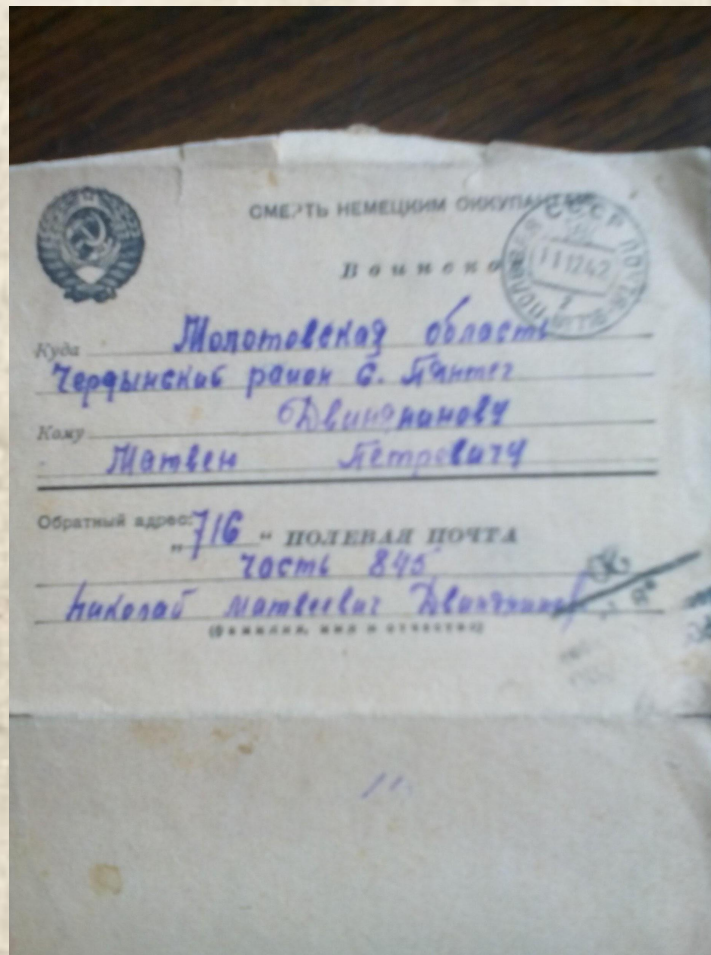 СМЕРТЬ НЕМЕЦКИМ ОККУПАНТАМ
Воинско
СССР ПОЧТА ПОЛЕВАЯ
11 12 42
Куда Молотовская область
Чердынский район с. Пянтег
Кому Двинянинову
Матвею Петровичу
Обратный адрес:
„716“ ПОЛЕВАЯ ПОЧТА
часть 845
Николай Матвеевич Двинянинов
(фамилия, имя и отчество)